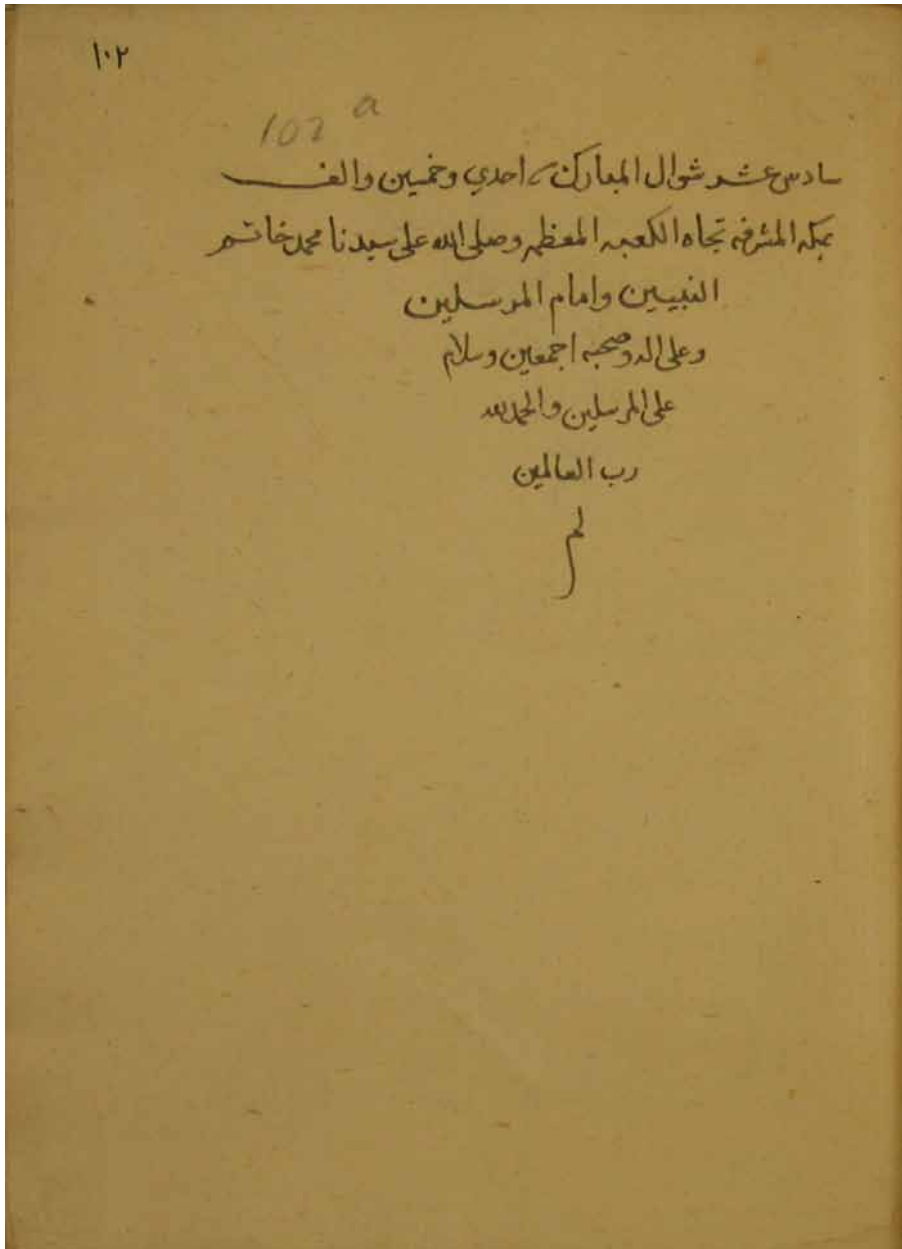 ١٠٢
102 a
سادس عشر شوال المبارك احدي وخمسين والف
بمكه المشرفه تجاه الكعبه المعظمه وصلى الله على سيدنا محمد خاتم
النبيين وامام المرسلين
وعلى اله وصحبه اجمعين وسلام
على المرسلين والحمد لله
رب العالمين